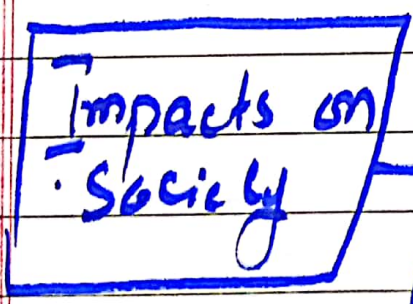 Impacts on
Society